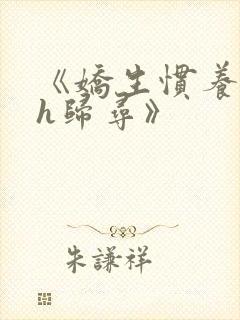 《嬌生慣養
h歸尋》
朱謙祥